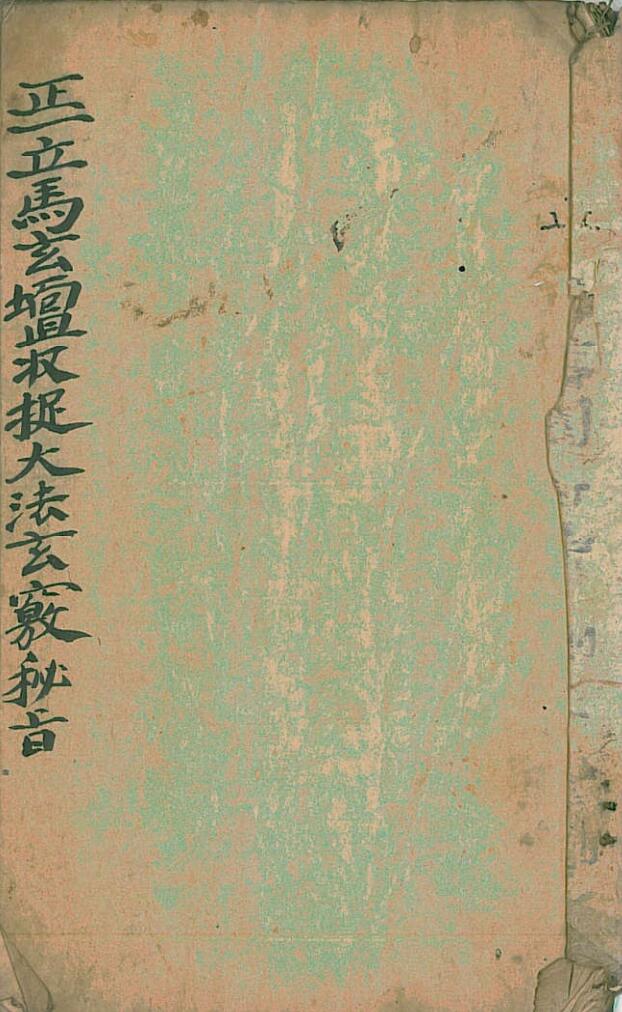 正一立馬玄壇收捉大法玄竅秘旨